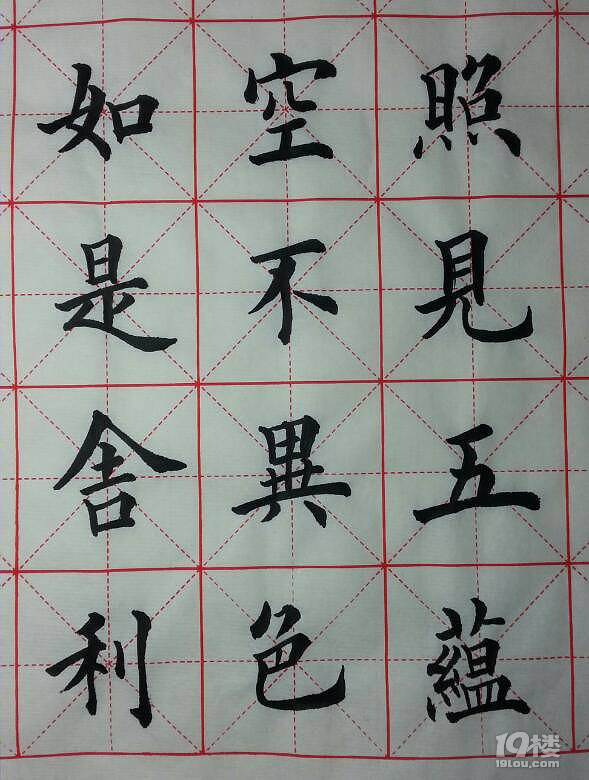 照見五蘊
空不異色
如是舍利
19楼
19lou.com